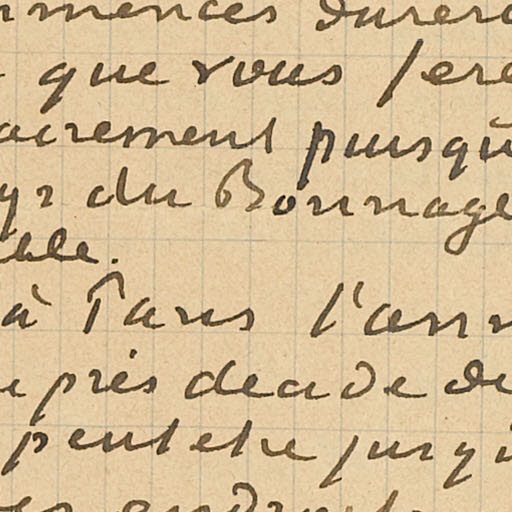 mences durer
que vous fere
airement puisqu
du Bornage
ble.
à Paris l'ann
près decade de
peut etre jusqu